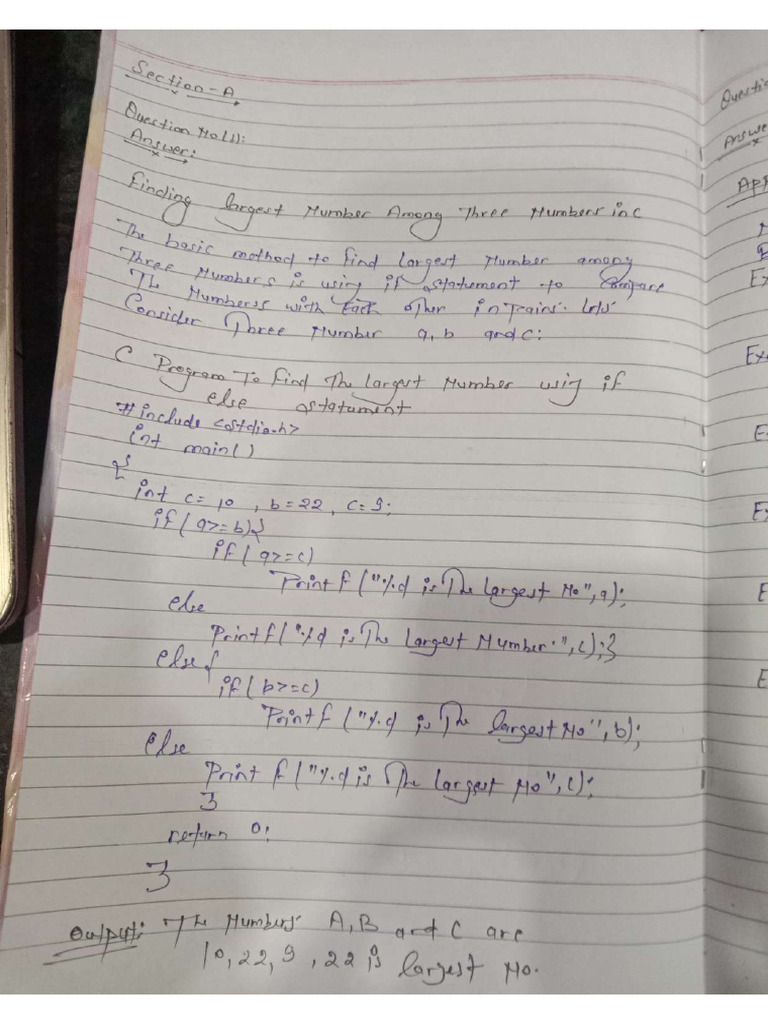 Section-A
Question No(1):
Answer:
Finding largest Number Among Three Numbers in C
The basic method to find largest Number among
Three Numbers is using if statement to Compare
The Numberss with Each other in pairs. Lets
Consider Three Number a, b and c:
C Program To find The largest Number using if
else statement
#include <stdio.h>
int main()
{
int c= 10 , b=22, c=9;
if(a>=b){
if(a>=c)
Printf("%d is The largest No",a);
else
Printf("%d is The largest Number.",c);}
else{
if(b>=c)
Printf ("%d is The largest No",b);
else
Printf("%d is The largest No",c);
}
return 0;
}
Output: The Numbers A, B and C are
10,22,9 ,22 is largest No.
Questio
Answe
App
Ex
Exa
E
Ex
E
E